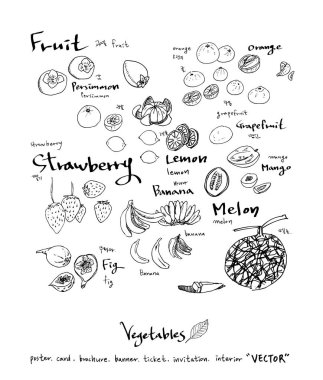 Fruit
과일 fruit
orange
Orange
Persimmon
persimmon
grapefruit
Grapefruit
strawberry
Strawberry
딸기
Lemon
lemon
mango
Mango
Banana
Melon
melon
banana
Fig
fig
Banana
Vegetables
poster. card. brochure. banner. ticket. invitation. interior "VECTOR"